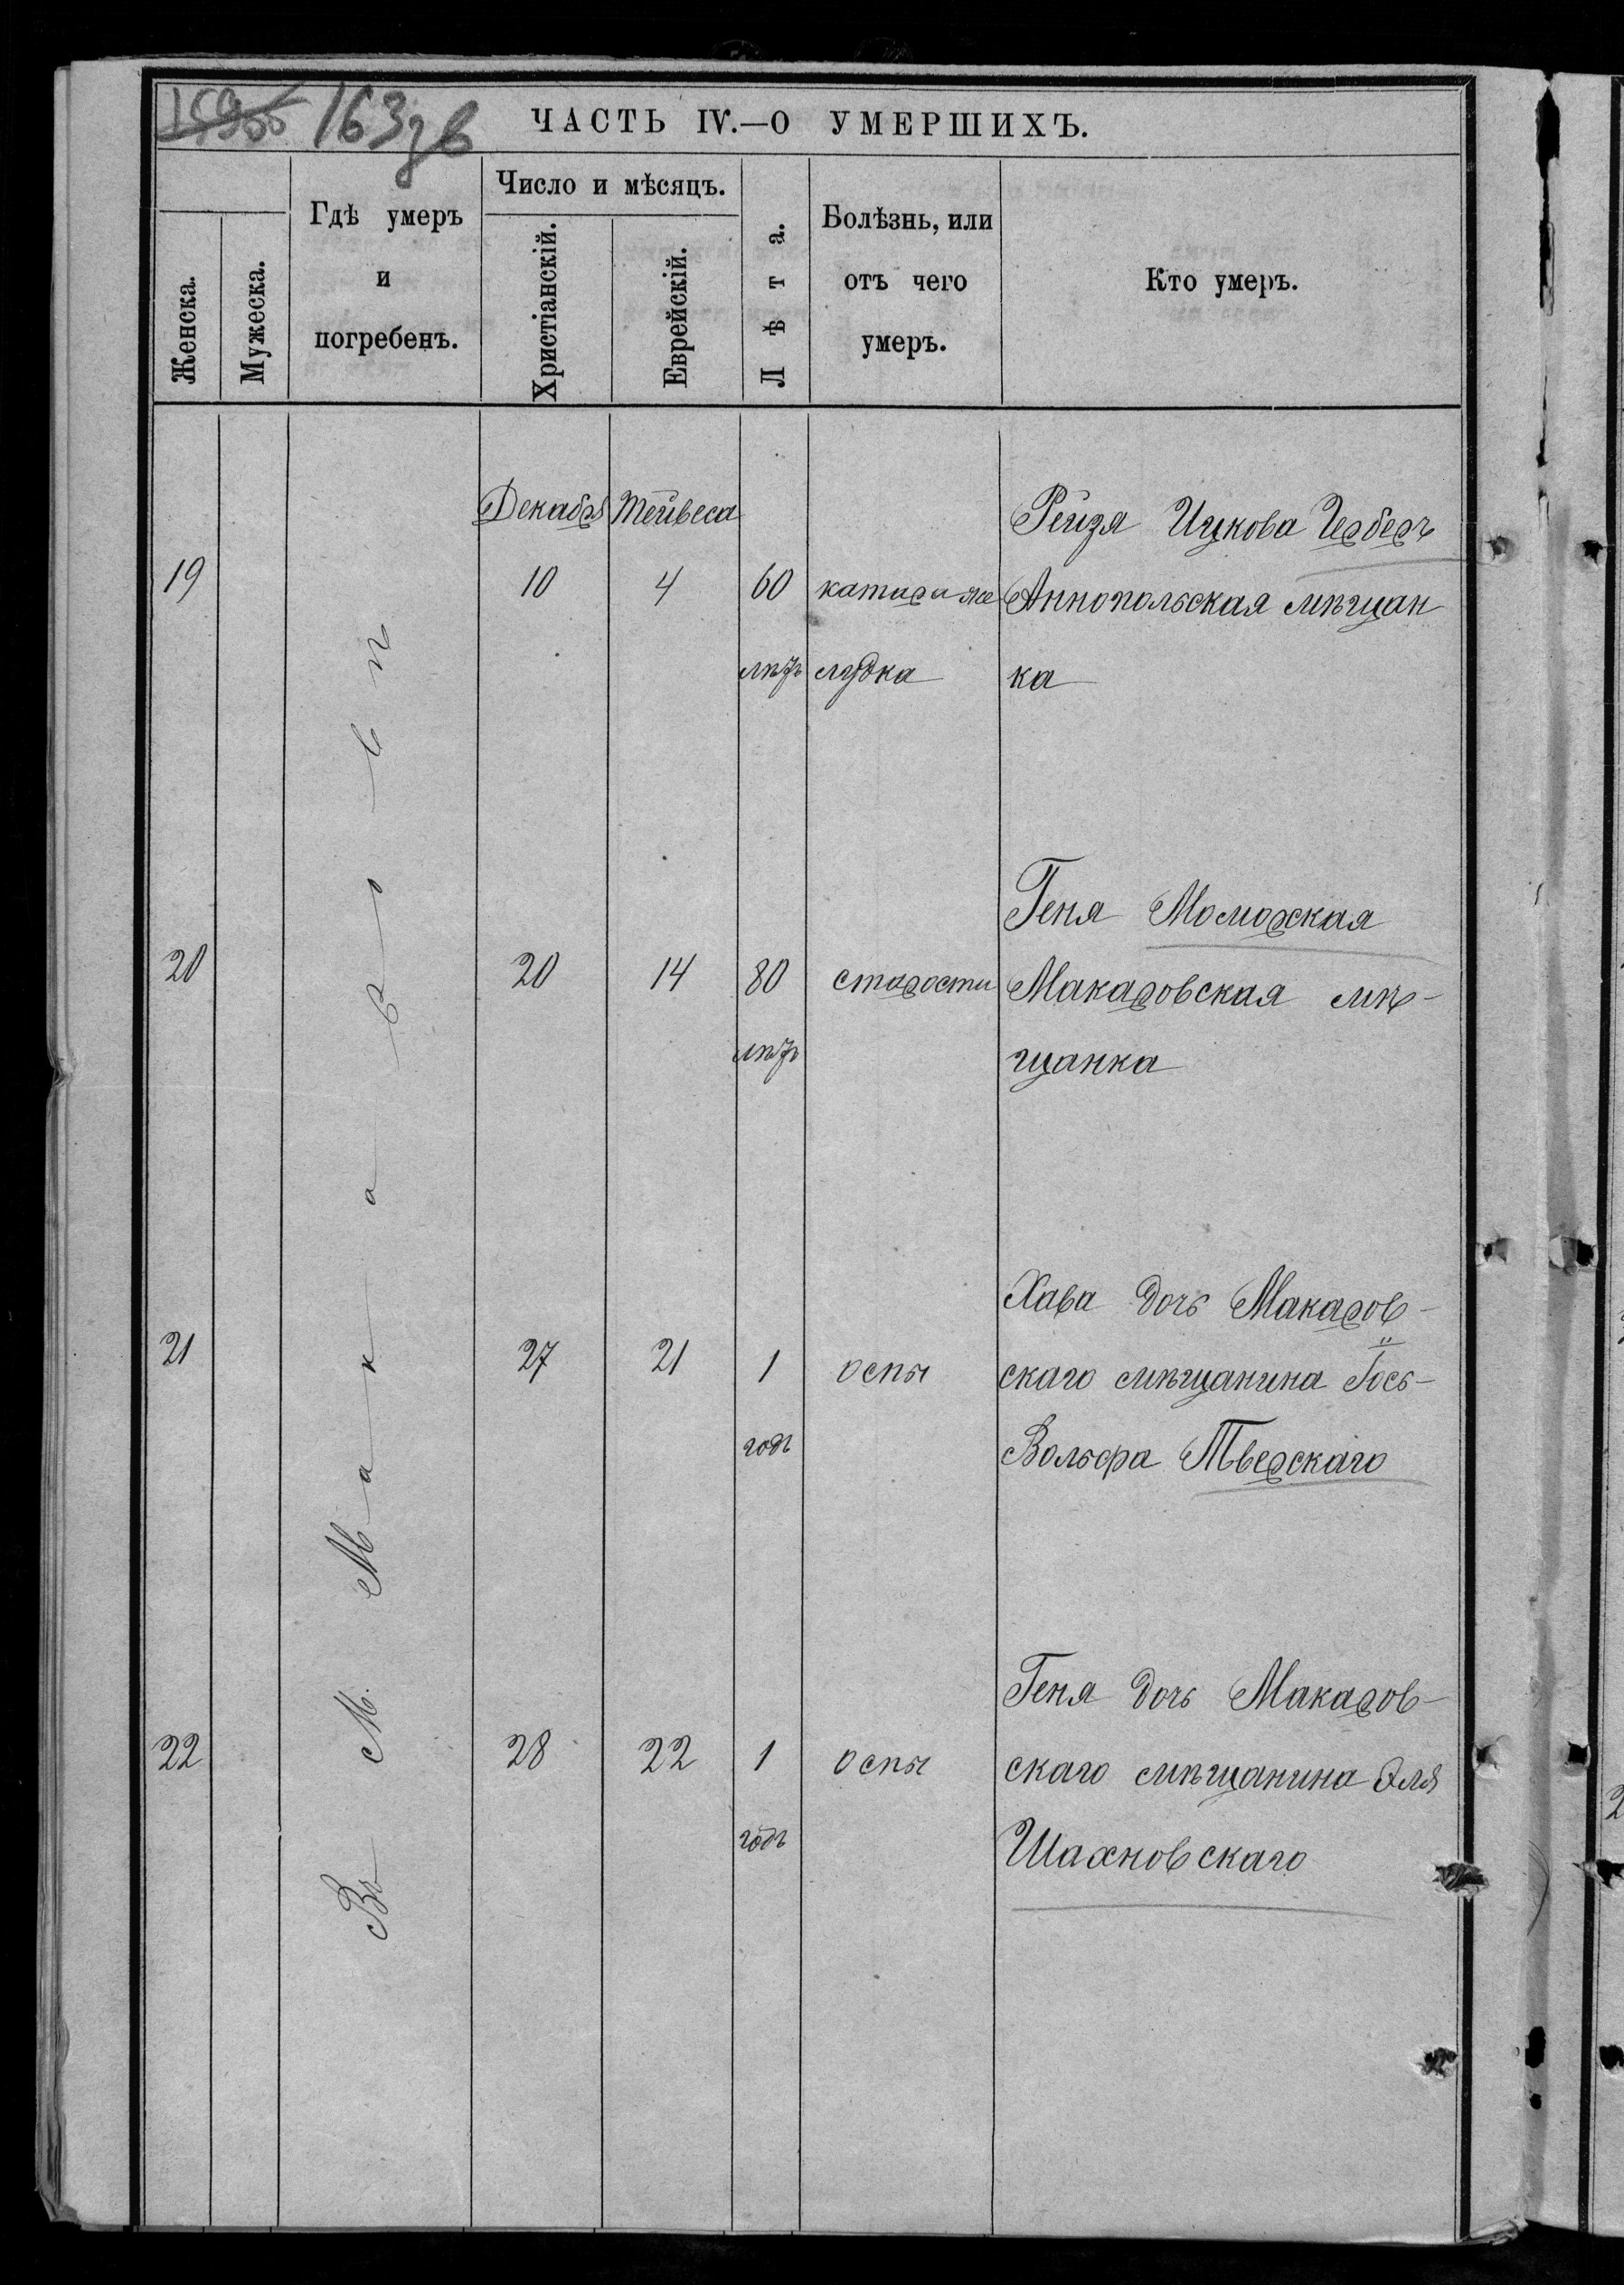 163зв
ЧАСТЬ IV.—О УМЕРШИХЪ.
Женска.
Мужеска.
Гдѣ умеръ
и
погребенъ.
Число и мѣсяцъ.
Христіанскій.
Еврейскій.
Лѣта.
Болѣзнь, или
отъ чего
умеръ.
Кто умеръ.
Въ М. Макаровѣ
Декабря Тейвеса
19 10 4 60 лѣтъ
катара же
лудка
Рейзя Ицкова Церберъ
Аннопольская мѣщан
ка
20 20 14 80 лѣтъ
старости
Геня Моморская
Макаровская мѣ-
щанка
21 27 21 1 годъ
оспы
Хава дочь Макаров-
скаго мѣщанина Іось-
Вольфа Тверскаго
22 28 22 1 годъ
оспы
Геня дочь Макаров-
скаго мѣщанина Эля
Шахновскаго